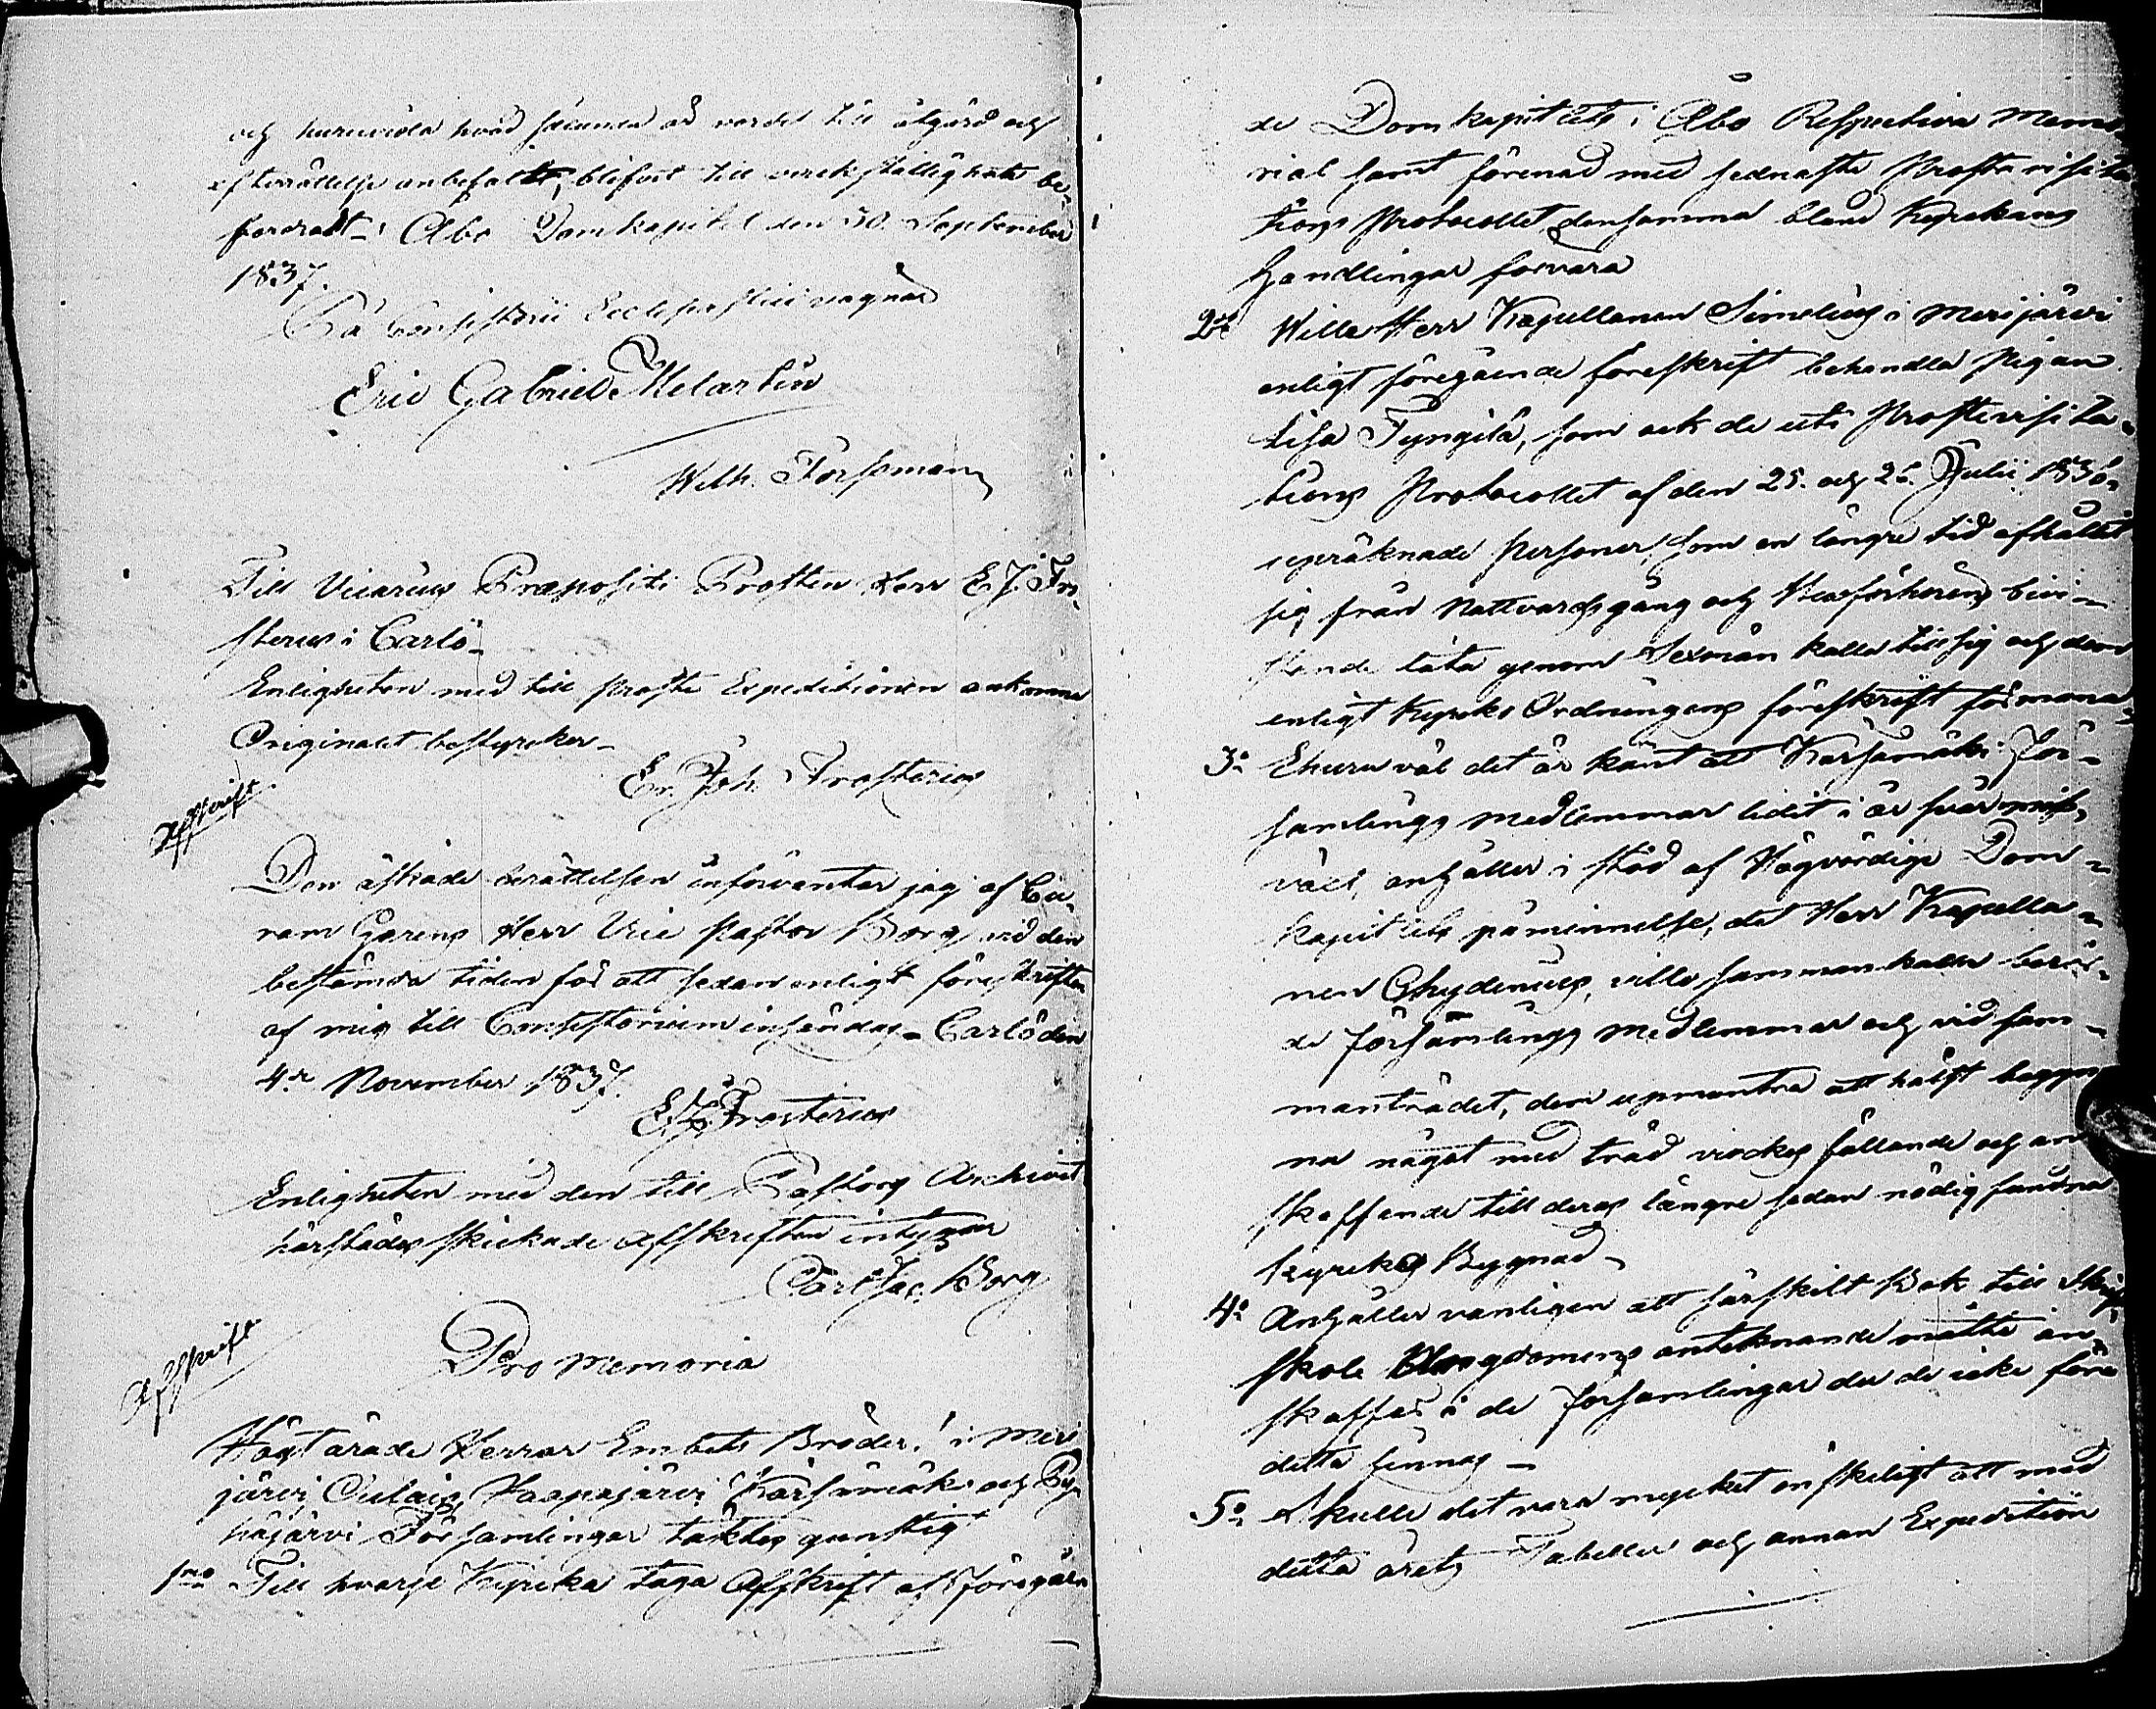 och huruvida hvad sålunda är vordet till åtgärd och
efterrättelse anbefalt, blifvit till verkställighete be-
fordradt. Åbo Domkapitel den 30. September
1837.
På Consistorii Ecclesiastici vägnar
Eric Gabriel Melartin
Wilh. Forssman
Till Vicarius Præpositi Prosten Herr E. J. Fro-
sterus i Carlö
Enligheten med till Prosts Expeditionen ankomna
Originalet bestyrcker
Er. Joh. Frosterus
Afskrift
Den äskade berättelsen införväntar jag af Cu-
ram Gerens Herr Vice Pastor Borg vid den
bestämda tiden för att sedan enligt föreskriften
af mig till Consistorium insändas. Carlö den
4de November 1837.
E. J. Frosterus
Enligheten med den till Pastors Archivet
härstädes skickade Afskriften intygar
Carl Jac. Borg
Afskrift
Pro Memoria
Högtärade Herrar Embets Bröder! i Meri
järvi Oulais, Haapajärvi Kärsämäki och Py-
häjärvi Församlingar täcktes gunstigt
1mo Till hvarje Kyrcka taga Afskrift af föregåen
de Domkapitlets i Åbo Respective Memo-
rial samt förenad med sednaste Prosta visita
tions Protocollet densamma bland Kyrckans
Handlingar förvara
2do Wille Herr Kapellanen Simelius i Merijärvi
enligt föregående föreskrift behandla Pigan
Lisa Tyngilä, som ock de uti Prostevisita-
tions Protocollet af den 25. och 26. Julii 1836.
upräknade Personer, som en längre tid afhållit
sig från Nattvardsgång och Läseförhören bivi-
stande låta genom Sexman kalla till sig och dem
enligt Kyrcko Ordningens föreskrift förmana
3o Ehuru väl det är känt att Kärsämäki För-
samlings medlemmar lidit i år svår miss-
växt, anhåller i stöd af Högvördige Dom-
kapitlets påminnelse, det Herr Kapella-
nen Chydenius, ville sammankalla berör-
de församlings medlemmar och vid sam-
manträdet, dem upmuntra att hälst begyn
na något med träd virckes fällande och an
skaffande till deras längre sedan nödig fundna
kyrckos Bygnad
4o Anhåller vänligen att särskilt Bok till Skrift
skole Ungdomens antecknande måtte an-
skaffas i de församlingar der de icke före
detta finnas
5o Skulle det vara mycket önskeligt att med
detta årets Tabeller och annan Expedition